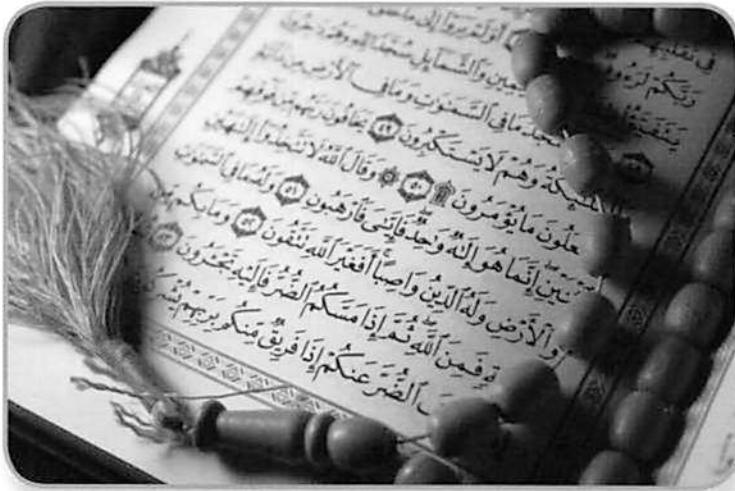 فِي تَقَلُّبِهِمْ أَوَلَمْ يَرَوْا إِلَىٰ مَا خَلَقَ
رَبَّكُمْ لَرَءُوفٌ وَٱلشَّمَآئِلِ سُجَّدًا لِّلَّهِ وَهُمْ دَٰخِرُونَ
يَتَفَيَّؤُا۟ يَسْجُدُ مَا فِي ٱلسَّمَٰوَٰتِ وَمَا فِي ٱلْأَرْضِ مِن دَآبَّةٍ
وَٱلْمَلَٰٓئِكَةُ وَهُمْ لَا يَسْتَكْبِرُونَ ٤٩ يَخَافُونَ رَبَّهُم مِّن فَوْقِهِمْ
وَيَفْعَلُونَ مَا يُؤْمَرُونَ ۩ ٥٠ ۞ وَقَالَ ٱللَّهُ لَا تَتَّخِذُوٓا۟ إِلَٰهَيْنِ
ٱثْنَيْنِ إِنَّمَا هُوَ إِلَٰهٌ وَٰحِدٌ فَإِيَّٰيَ فَٱرْهَبُونِ ٥١ وَلَهُۥ مَا فِي ٱلسَّمَٰوَٰتِ
وَٱلْأَرْضِ وَلَهُ ٱلدِّينُ وَاصِبًا أَفَغَيْرَ ٱللَّهِ تَتَّقُونَ ٥٢ وَمَا بِكُم مِّن
فَمِنَ ٱللَّهِ ثُمَّ إِذَا مَسَّكُمُ ٱلضُّرُّ فَإِلَيْهِ تَجْـَٔرُونَ ٥٣
ٱلضُّرَّ عَنكُمْ إِذَا فَرِيقٌ مِّنكُم بِرَبِّهِمْ يُشْرِكُونَ